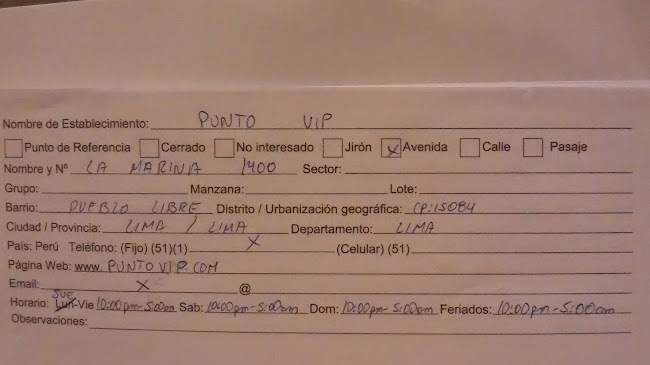 Nombre de Establecimiento: PUNTO VIP
Punto de Referencia Cerrado No interesado Jirón X Avenida Calle Pasaje
Nombre y Nº LA MARINA 1400 Sector:
Grupo: Manzana: Lote:
Barrio: PUEBLO LIBRE Distrito / Urbanización geográfica: CP:15084
Ciudad / Provincia: LIMA / LIMA Departamento: LIMA
País: Perú Teléfono: (Fijo) (51)(1) X (Celular) (51)
Página Web: www. PUNTOVIP.COM
Email: X @
JUE
Horario: Lun-Vie 10:00pm-5:00am Sab: 10:00pm-5:00am Dom: 10:00pm-5:00am Feriados: 10:00pm-5:00am
Observaciones: